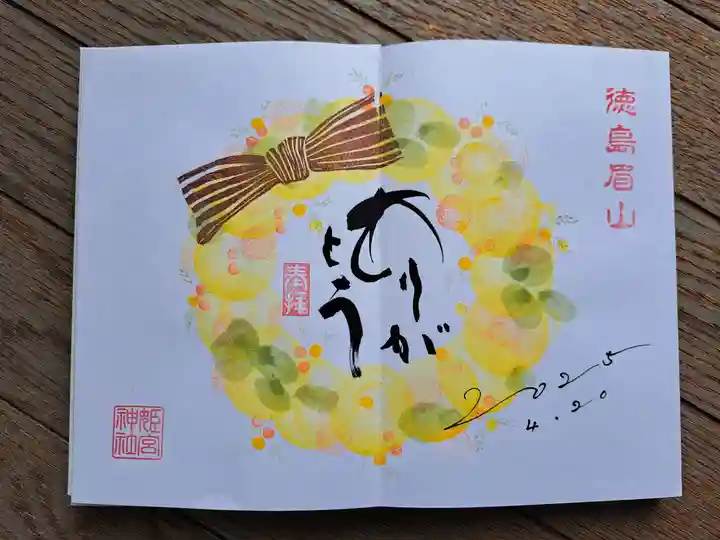 徳島眉山
ありが
とう
奉拝
2025
4.20
姫宮
神社